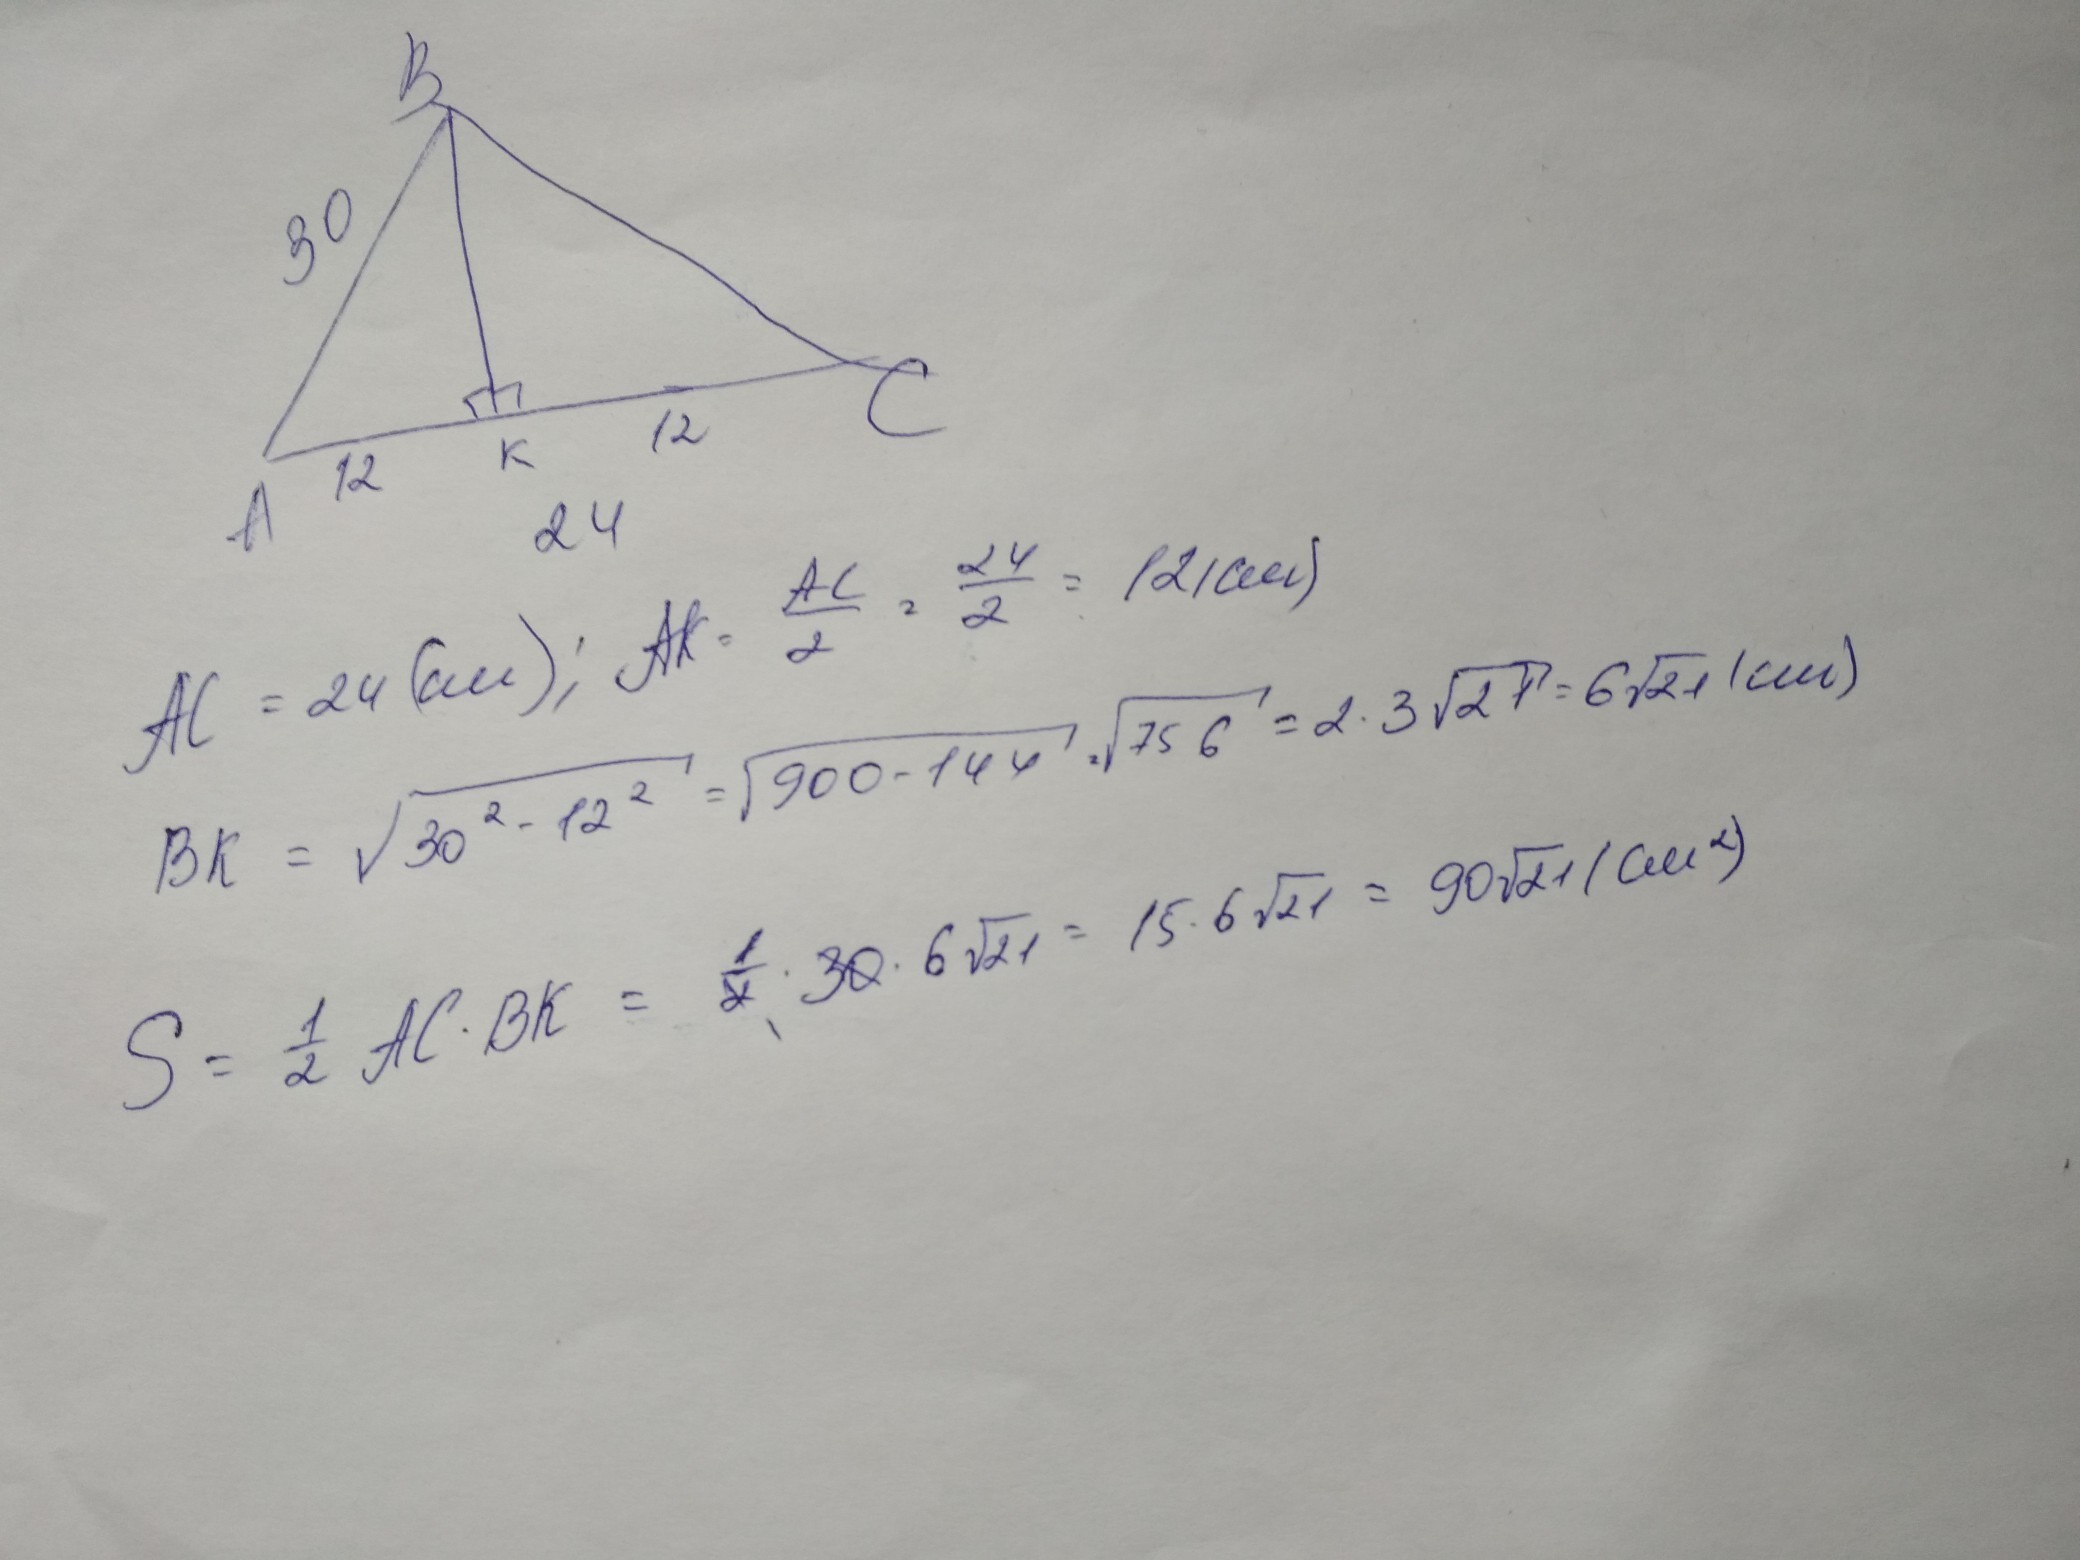 B
30
12 K 12 C
A
24
AC = 24 (см); AK = AC/2 = 24/2 = 12 (см)
BK = √(30² - 12²) = √(900 - 144) = √756 = 2·3√21 = 6√21 (см)
S = 1/2 AC·BK = 1/2 · 30 · 6√21 = 15·6√21 = 90√21 (см²)